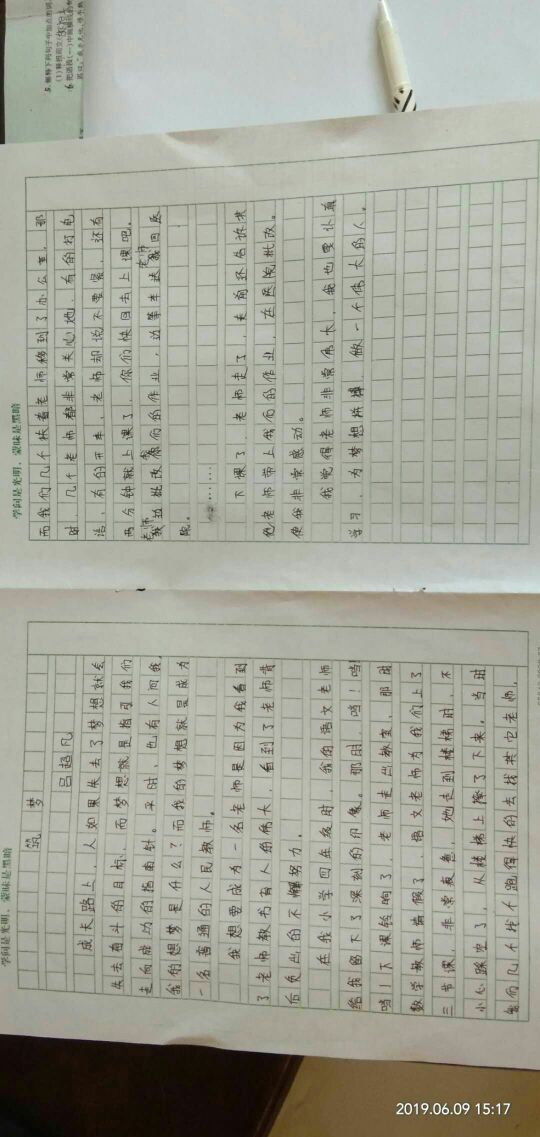 学问是光明，蒙昧是黑暗
筑 梦
吕超凡
成长路上，人如果失去了梦想就会
失去奋斗的目标，而梦想就是指引我们
走向成功的指南针。平时，也有人问我，
我的想梦是什么？而我的梦想就是成为
一名普通的人民教师。
我想要成为一名老师是因为我看到
了老师教书育人的伟大，看到了老师背
后负出的不懈努力。
在我小学四年级时，我的语文老师
给我留下了深刻的印象。那时，当！当！
当！下课铃响了，老师走出教室，那时
数学教师请假了，语文老师为我们上了
三节课，非常疲惫，她走到楼梯时，不
小心踩空了，从楼梯上摔了下来，当时
我们几个找个跑得快的去找其它老师，
学问是光明，蒙昧是黑暗
而我们几个扶着老师移到了办公室，那
时，几个老师都非常关心她，有的打电
话，有的开车，老师却说不要紧，还有
两分钟就上课了，你们快回去上课吧。
老师边批改我们的作业，边等车送老师回医
院。
……
下课了，老师走了，走前还告诉其
他老师带上我们的作业，在医院批改。
使我非常感动。
我觉得老师非常伟大，我也要认真
学习，为梦想拼搏，做一个伟大的人。
2019.06.09 15:17